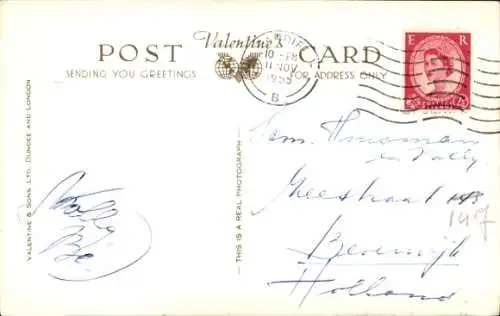 POST Valentine's CARD
SENDING YOU GREETINGS FOR ADDRESS ONLY
10 - PM
11 NOV
1953
B
E R
VALENTINE & SONS LTD. DUNDEE AND LONDON
THIS IS A REAL PHOTOGRAPH
Fam.
Geestraat
147
Beverwijk
Holland